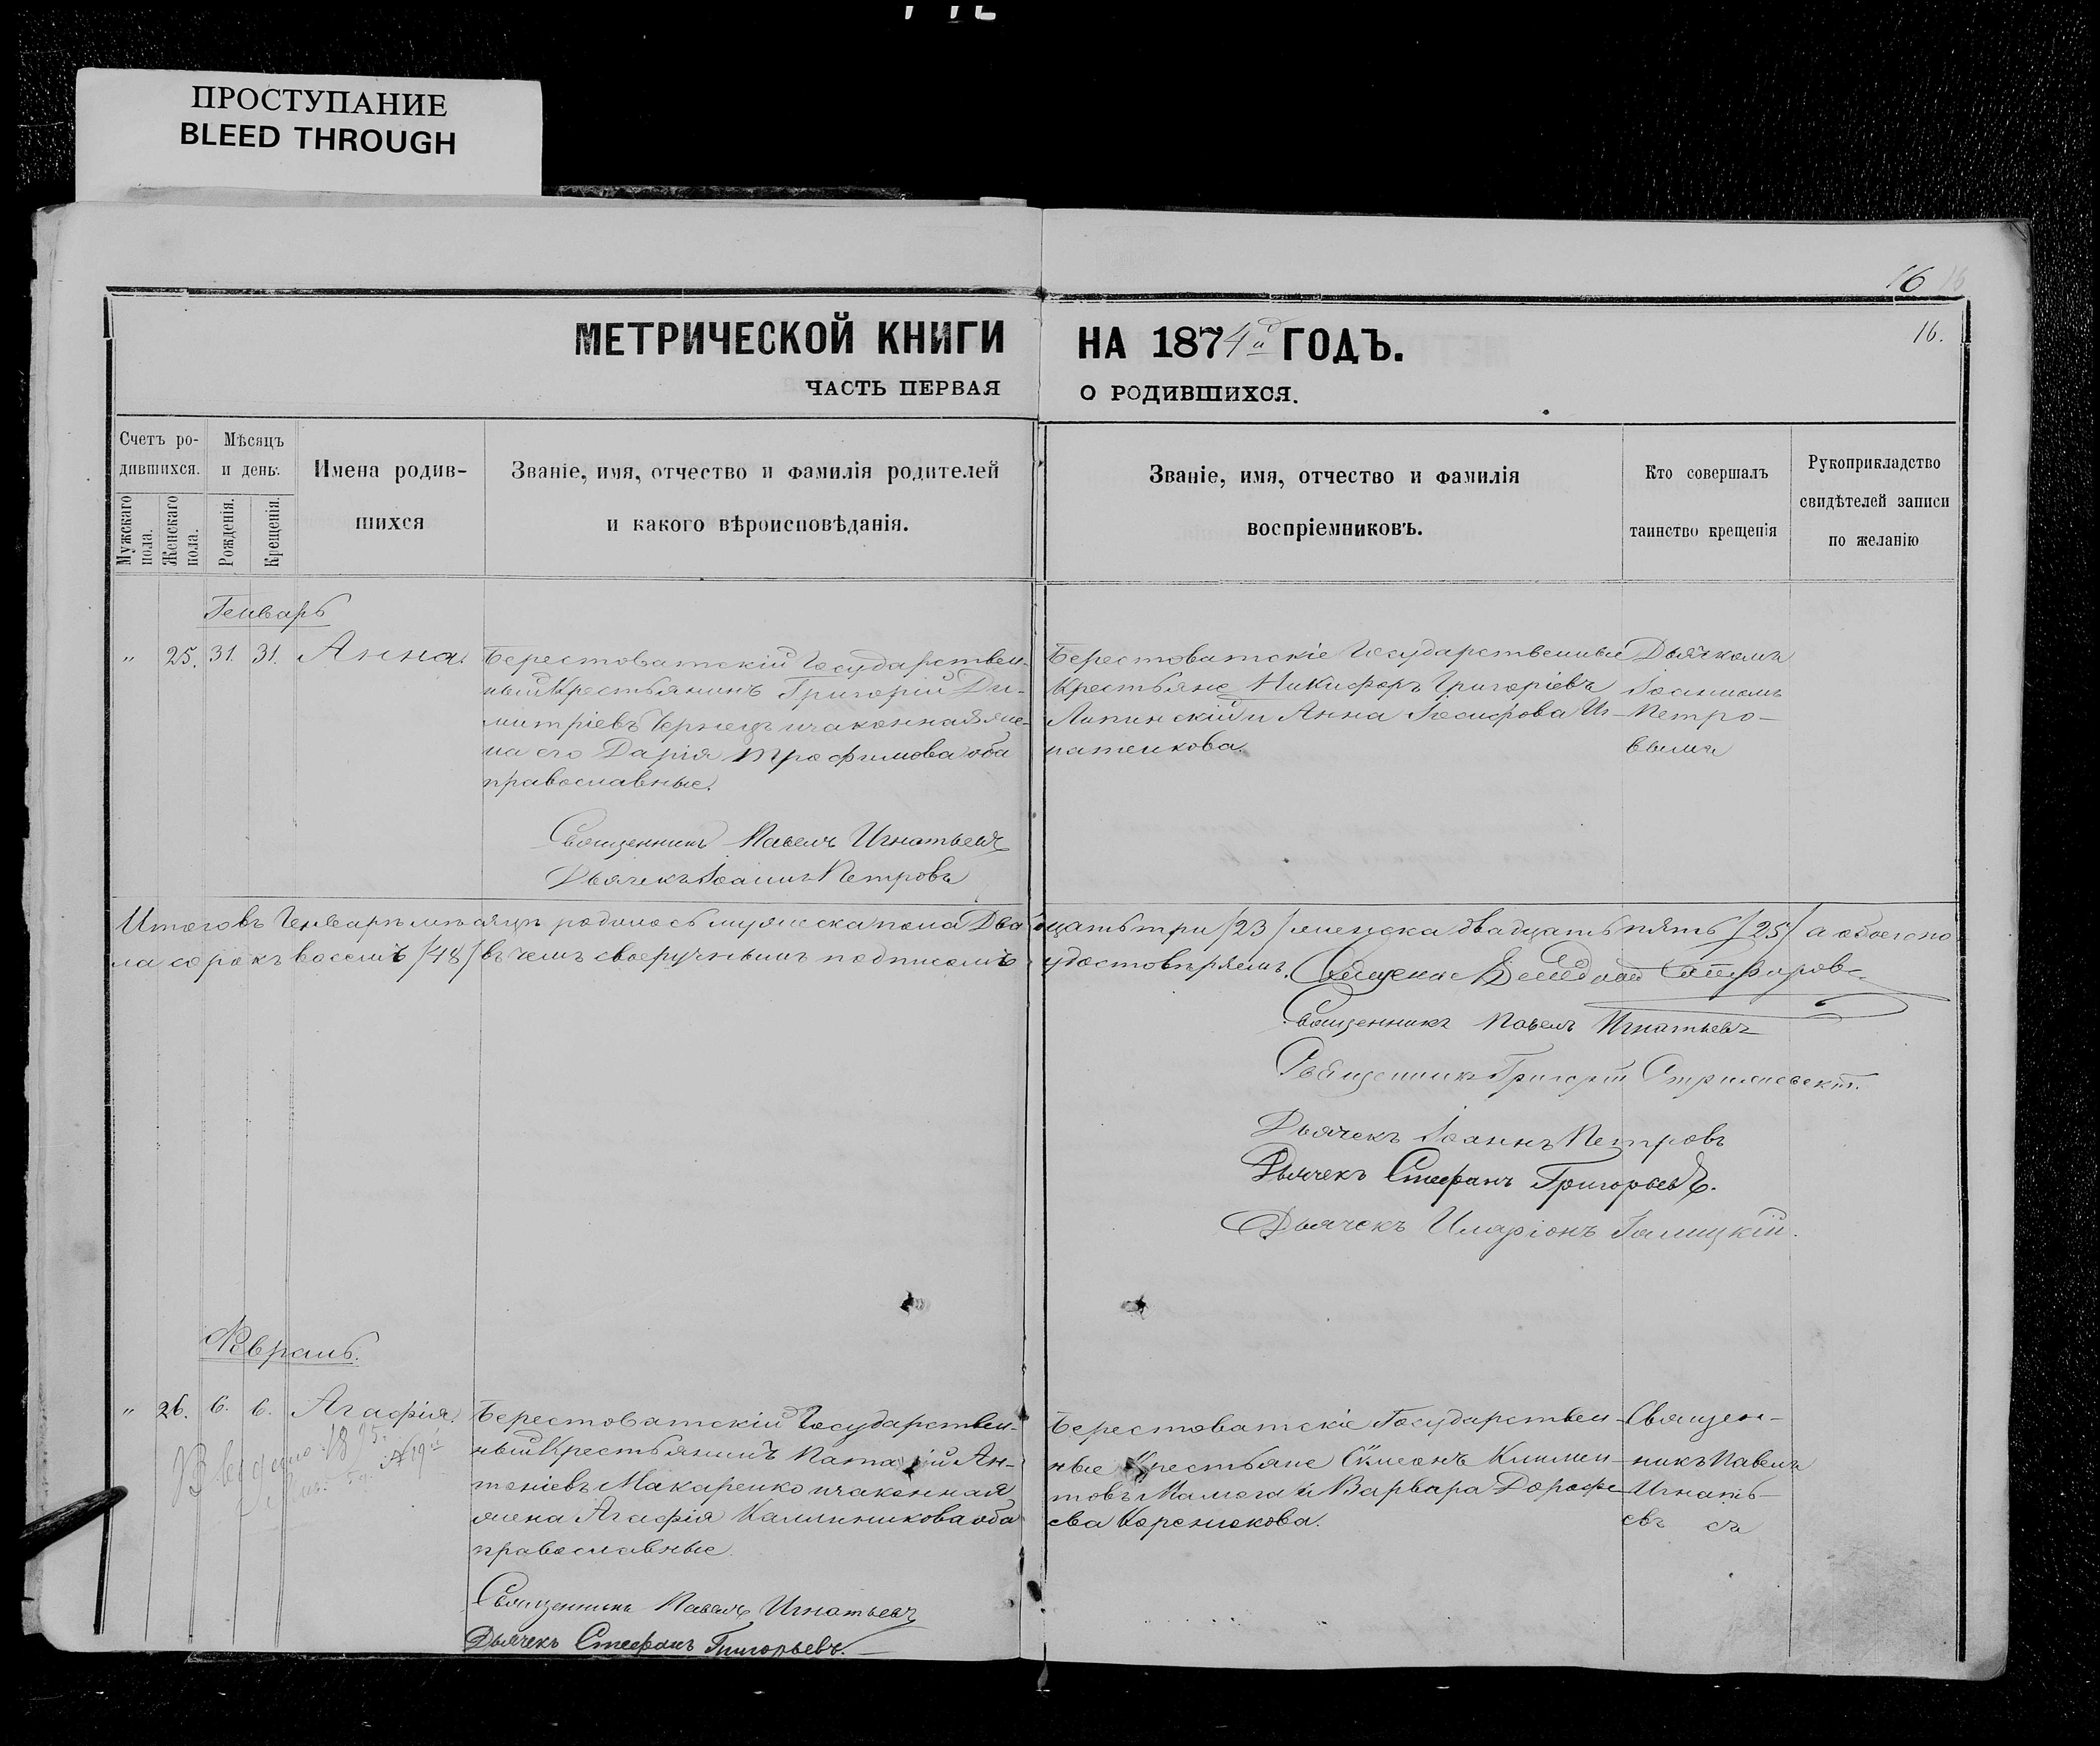 ПРОСТУПАНИЕ
BLEED THROUGH
16
16.
МЕТРИЧЕСКОЙ КНИГИ НА 1874й ГОДЪ.
ЧАСТЬ ПЕРВАЯ О РОДИВШИХСЯ.
Счетъ ро-
дившихся.
Мужскаго пола.
Женскаго пола.
Мѣсяцъ
и день.
Рожденія.
Крещенія.
Имена родив-
шихся
Званіе, имя, отчество и фамилія родителей
и какого вѣроисповѣданія.
Званіе, имя, отчество и фамилія
воспріемниковъ.
Кто совершалъ
таинство крещенія
Рукоприкладство
свидѣтелей записи
по желанію
Генварь
" 25. 31. 31. Анна.
Берестоватскій Государствен-
ный Крестьянинъ Григорій Ди-
митріевъ Чернецъ и законная же-
на его Дарія Трофимова оба
православные.
Священникъ Павелъ Игнатьевъ
Дьячекъ Іоаннъ Петровъ
Берестоватскіе Государственные
Крестьяне Никифоръ Григоріевъ
Липинскій и Анна Іосифова Иг-
натенкова.
Дьячкомъ
Іоанномъ
Петро-
вымъ
Итого въ Генварѣ мѣсяцѣ родилось мужеска пола Двадцать три /23/ женска двадцать пять /25/ а обоего по-
ла сорокъ восемь /48/ въ чемъ своеручнымъ подписомъ удостовѣряемъ. Священникъ
Священникъ Павелъ Игнатьевъ
Священникъ Григорій
Дьячекъ Іоаннъ Петровъ
Дьячекъ Стефанъ Григорьевъ.
Дьячекъ Иларіонъ Галицкій.
Февраль.
" 26. 6. 6. Агафія.
Берестоватскій Государствен-
ный Крестьянинъ Ан-
тоніевъ Макаренко и законная
жена Агафія Калинникова оба
православные.
Священникъ Павелъ Игнатьевъ
Дьячекъ Стефанъ Григорьевъ.
Берестоватскіе Государствен-
ные Крестьяне Симеонъ Климен-
товъ Малюга и Варвара Дорофе-
ева Коренюкова.
Священ-
никъ Павелъ
Игнать-
евъ съ